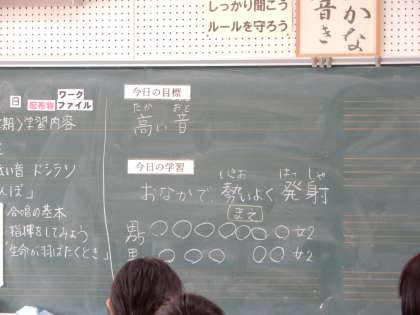 しっかり聞こう
ルールを守ろう
かな
音き
日
配布物
ワーク
ファイル
期〉学習内容
い音 ドシラソ
んぼ」
合唱の基本
指揮をしてみよう
「生命が羽ばたくとき」
今日の目標
たか おと
高い 音
今日の学習
いきお はっ しゃ
おなかで、勢いよく 発射
まて
男5 ○○○○○○○○ 女2
男 ○○○ ○○○ 女2